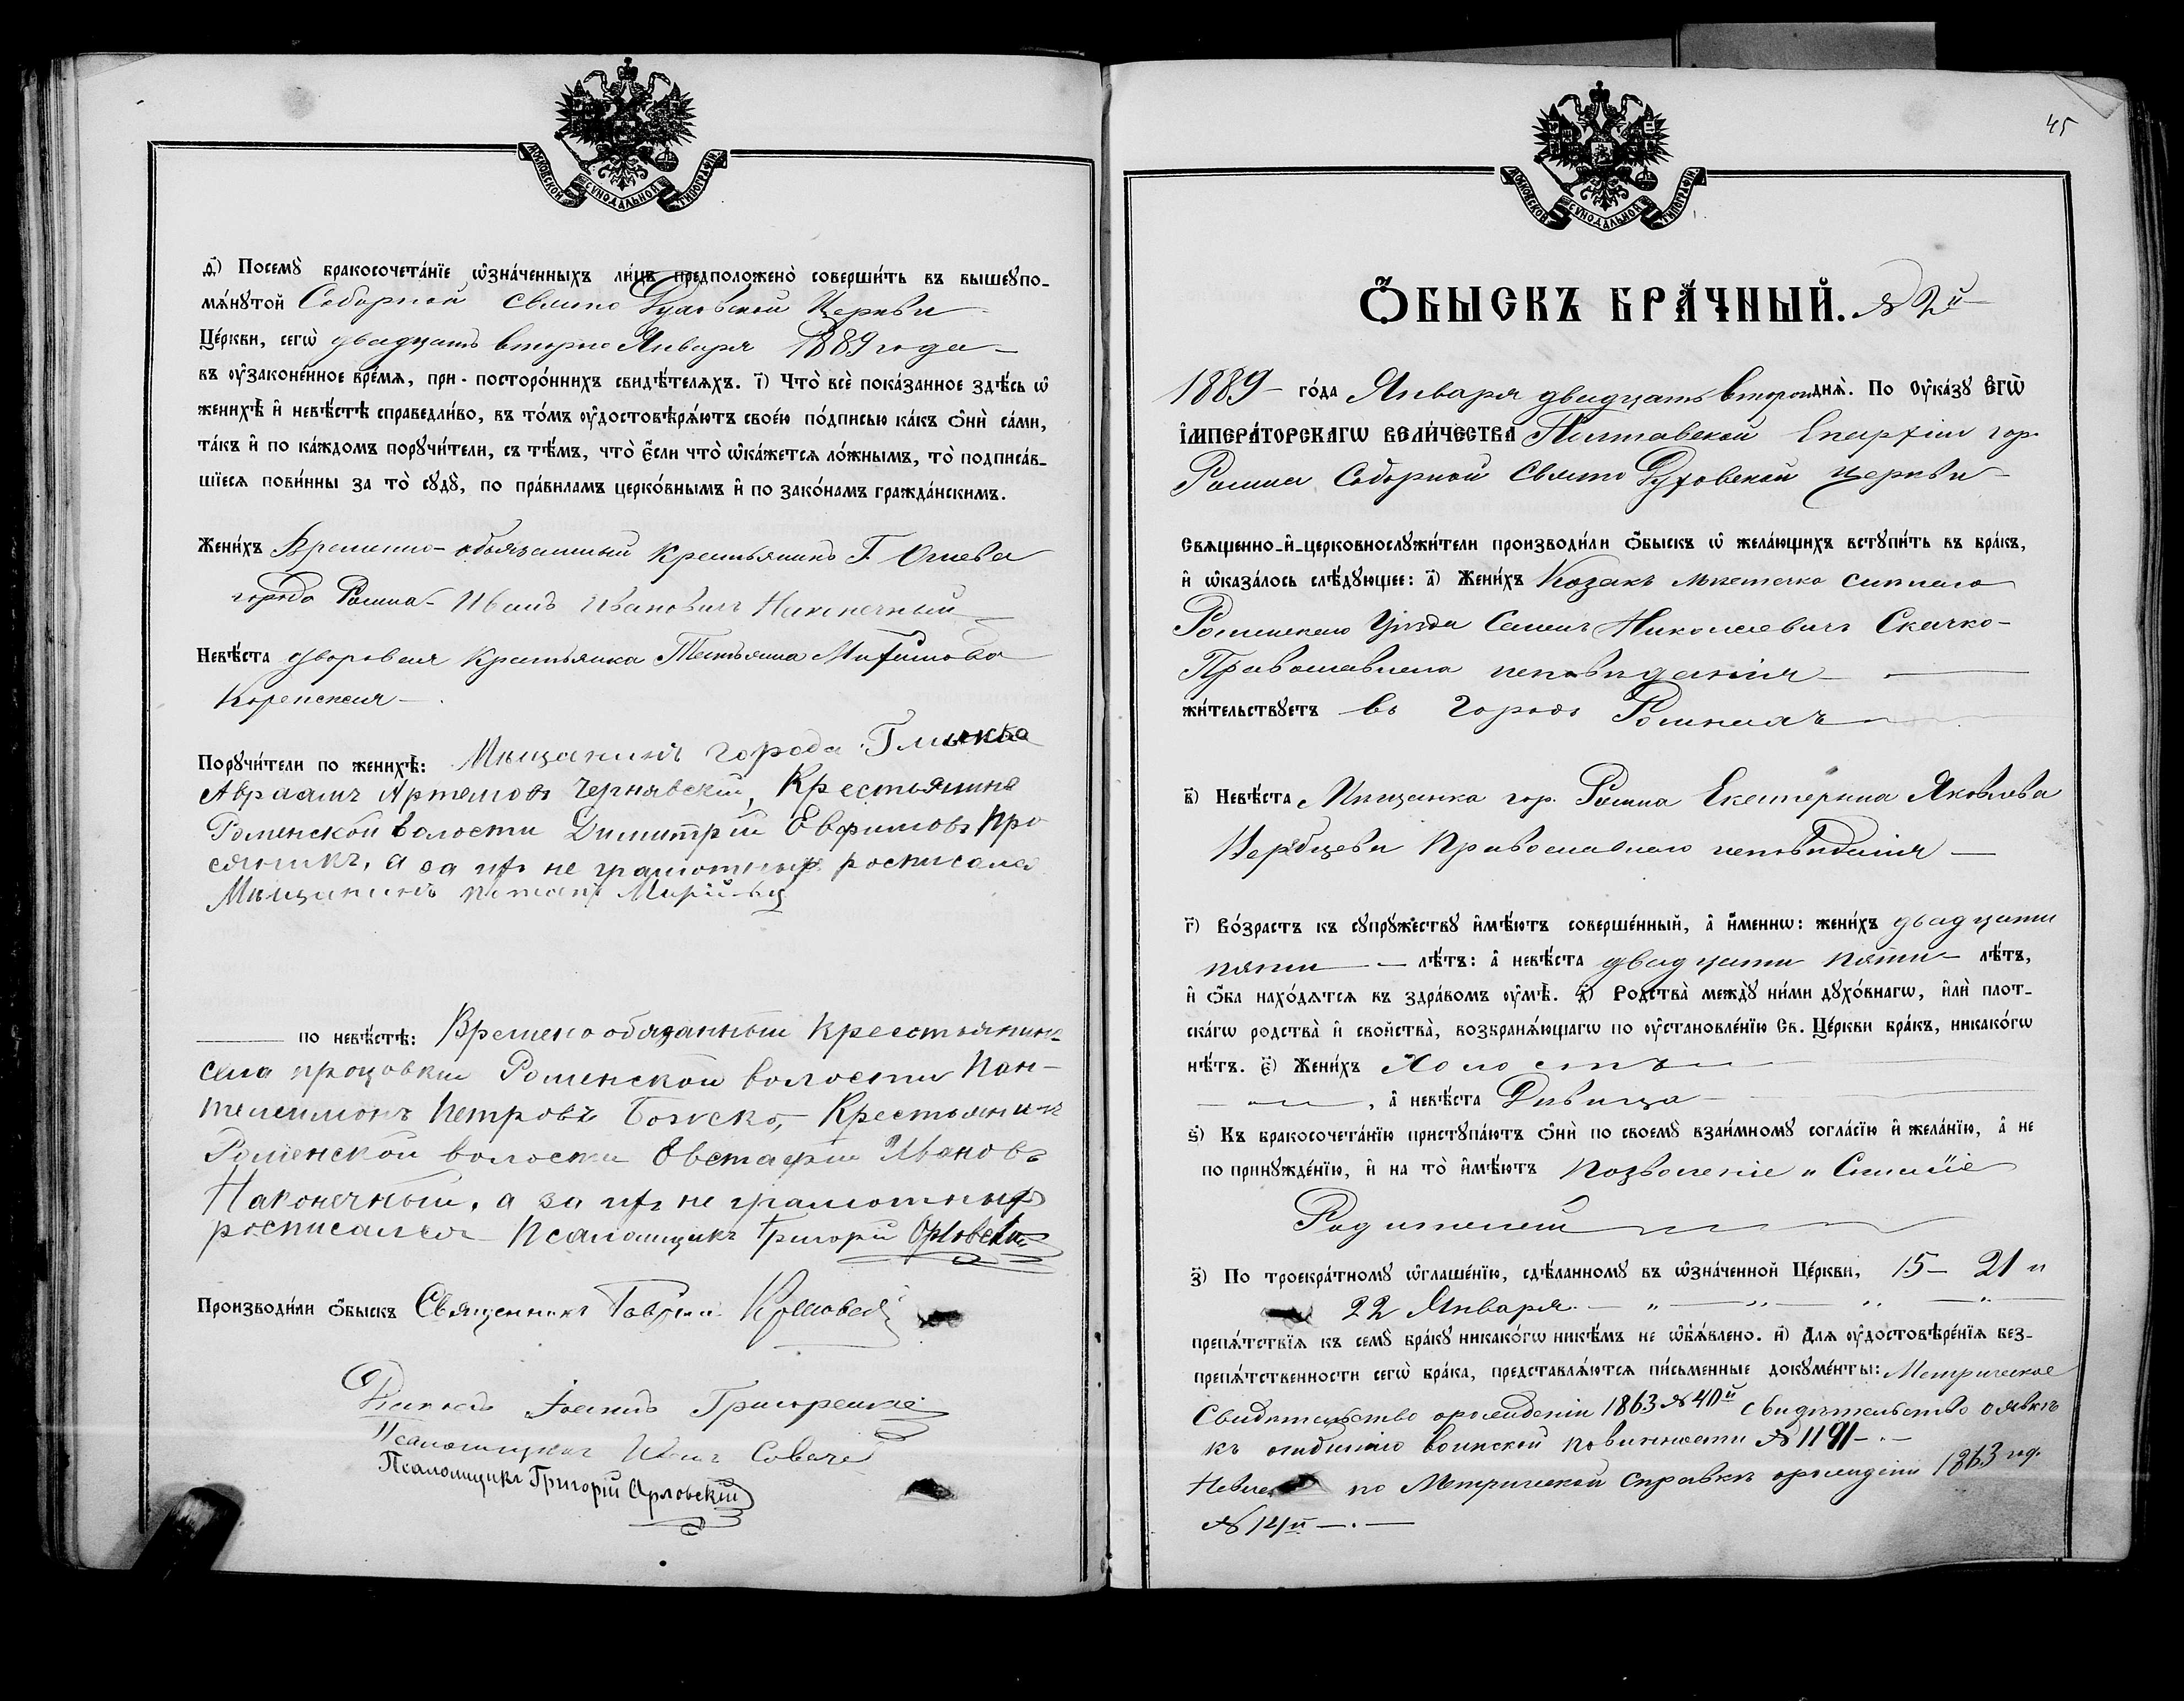 МОСКОВСКОЙ СѴНОДАЛЬНОЙ ТИПОГРАФІИ
ѳ҃) Посемꙋ̀ бракосочета́нїе ѡ҆зна́ченныхъ ли́цъ предположено̀ соверши́ть въ вышеꙋпо-
мѧ́нꙋтой Соборной Свято Духовской Церкви
Це́ркви, сегѡ̀ двадцать второго Января 1889 года
въ ᲂу҆законе́нное вре́мѧ, при посторо́ннихъ свидѣ́телѧхъ. і҃) Что̀ всѐ пока́занное здѣ́сь ѡ҆
женихѣ̀ и҆ невѣ́стѣ справедли́во, въ то́мъ ᲂу҆достовѣрѧ́ютъ свое́ю по́дписью ка́къ ѻ҆нѝ са́ми,
та́къ и҆ по ка́ждомъ порꙋчи́тели, съ тѣ́мъ, что̀ є҆́сли что̀ ѡ҆ка́жетсѧ ло́жнымъ, то̀ подписа́в-
шїесѧ пови́нны за то̀ сꙋдꙋ̀, по пра́виламъ церко́внымъ и҆ по зако́намъ гражда́нскимъ.
Жени́хъ Временно-обязанный крестьянинъ Г. Огнева
города Ромна Иванъ Ивановичъ Наконечный
Невѣ́ста дворовая крестьянка Татьяна
Коренская
Порꙋчи́тели по женихѣ̀: Мѣщанинъ города Глинска
Авраамъ Артемовъ Чернявскій, Крестьянинъ
Роменской волости Димитрій Евфимовъ Про
сяникъ, а за ихъ не грамотныхъ росписался
Мѣщанинъ
по невѣ́стѣ: Временообязанный Крестьянинъ
села Процовки Роменской волости Пан-
телеимонъ Петровъ Божко, Крестьянинъ
Роменской волости Евстафій Ивановъ
Наконечный, а за ихъ не грамотныхъ
росписался Псаломщикъ Григорій Орловскій
Производи́ли ѻ҆́быскъ Священникъ Гавріилъ
Діаконъ Іоаннъ
Псаломщикъ Иванъ
Псаломщикъ Григорій Орловскій
45
МОСКОВСКОЙ СѴНОДАЛЬНОЙ ТИПОГРАФІИ
Ѻ҆́БЫСКЪ БРА́ЧНЫЙ. № 2й
1889 го́да Января двадцать второго днѧ̀. По ᲂу҆ка́зꙋ Є҆ГѠ̀
І҆МПЕРА́ТОРСКАГѠ ВЕЛИ́ЧЕСТВА Полтавской Епархіи гор.
Ромна Соборной Свято Духовской церкви
Свѧщенно-и҆-церковнослꙋжи́тели производи́ли ѻ҆́быскъ ѡ҆ жела́ющихъ встꙋпи́ть въ бра́къ,
и҆ ѡ҆каза́лось слѣ́дꙋющее: а҃) Жени́хъ Козакъ мѣстечка Смѣлаго
Роменскаго Уѣзда Семенъ Николаевичъ Скачко
Православнаго исповѣданія
жи́тельствꙋетъ въ Городѣ Ромнахъ
в҃) Невѣ́ста Мѣщанка гор. Ромна Екатерина Яковлева
Православнаго исповѣданія
г҃) Во́зрастъ къ сꙋпрꙋ́жествꙋ и҆мѣ́ютъ соверше́нный, а҆ и҆́меннѡ: жени́хъ двадцати
пяти лѣ́тъ: а҆ невѣ́ста двадцати пяти лѣ́тъ,
и҆ ѻ҆́ба нахо́дѧтсѧ въ здра́вомъ ᲂу҆мѣ̀. д҃) Родства̀ междꙋ̀ ни́ми дꙋхо́внагѡ, и҆лѝ плот-
ска́гѡ родства̀ и҆ свойства̀, возбранѧ́ющагѡ по ᲂу҆становле́нїю Св. Це́ркви бра́къ, никако́гѡ
нѣ́тъ. є҃) Жени́хъ Холостъ
, а҆ невѣ́ста Дѣвица
ѕ҃) Къ бракосочета́нїю пристꙋпа́ютъ ѻ҆нѝ по своемꙋ̀ взаи́мномꙋ согла́сїю и҆ жела́нїю, а҆ не
по принꙋжде́нїю, и҆ на то̀ и҆мѣ́ютъ позволеніе и
Родителей
з҃) По троекра́тномꙋ ѡ҆глаше́нїю, сдѣ́ланномꙋ въ ѡ҆зна́ченной Це́ркви, 15 21 и
22 Января
препѧ́тствїѧ къ семꙋ̀ бра́кꙋ никако́гѡ никѣ́мъ не ѡ҆б̾ѧ́влено. и҃) Длѧ ᲂу҆достовѣре́нїѧ без-
препѧ́тственности сегѡ̀ бра́ка, представлѧ́ютсѧ пи́сьменные докꙋме́нты: Метрическое
Свидѣтельство о рожденіи 1863 № 40й свидѣтельство о явкѣ
къ отбытію воинской повинности № 1191
по Метрической справкѣ о рожденіи 1863 год.
№ 14й